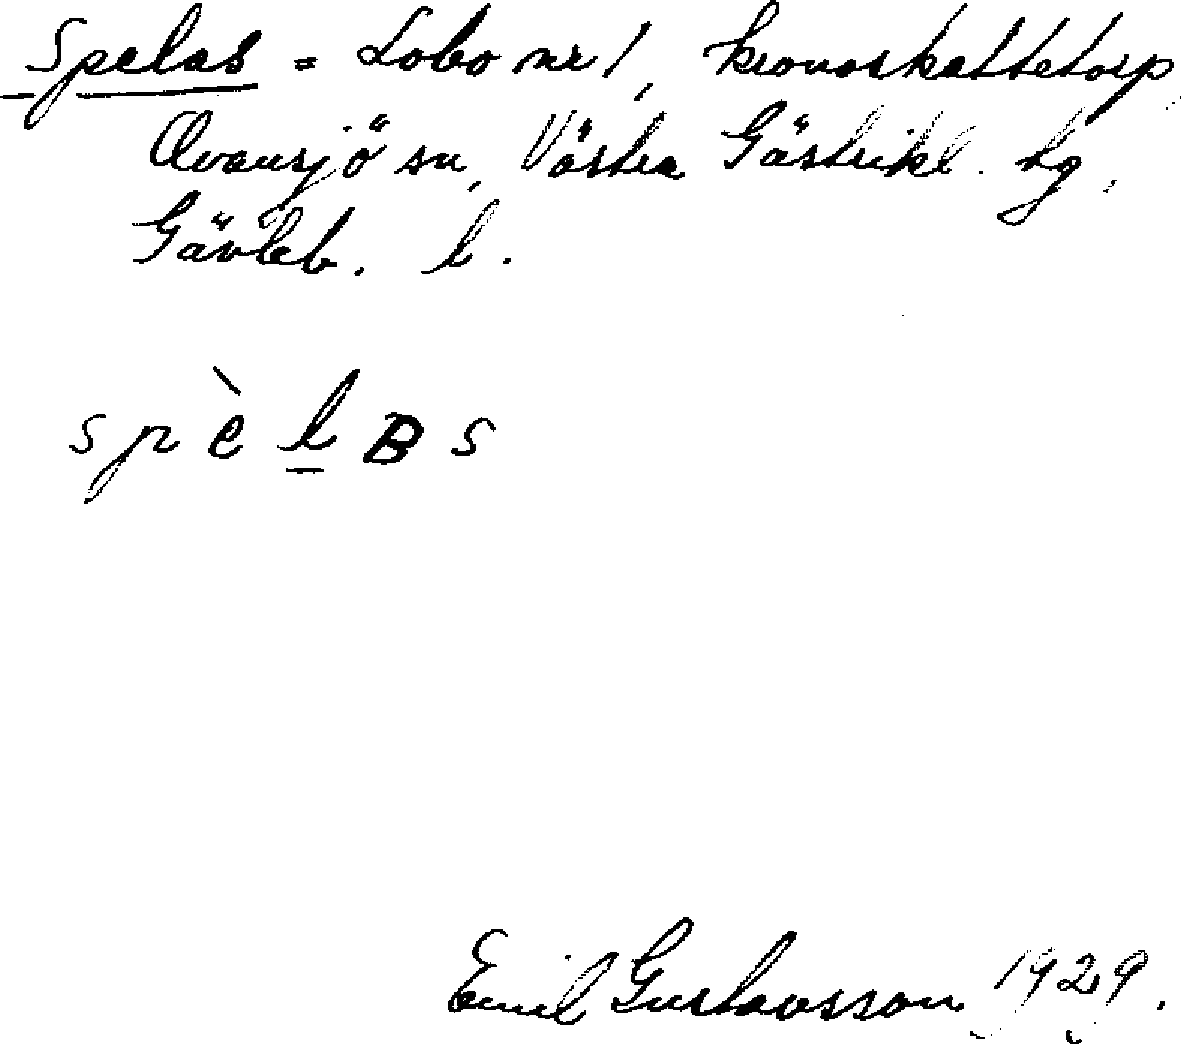 Spelas = Lobo nr 1, kronoskattetorp
Ovansjö sn, Västra Gästrikl. tg,
Gävleb. l.
spèl̲ʙs
Emil Gustavsson 1929.